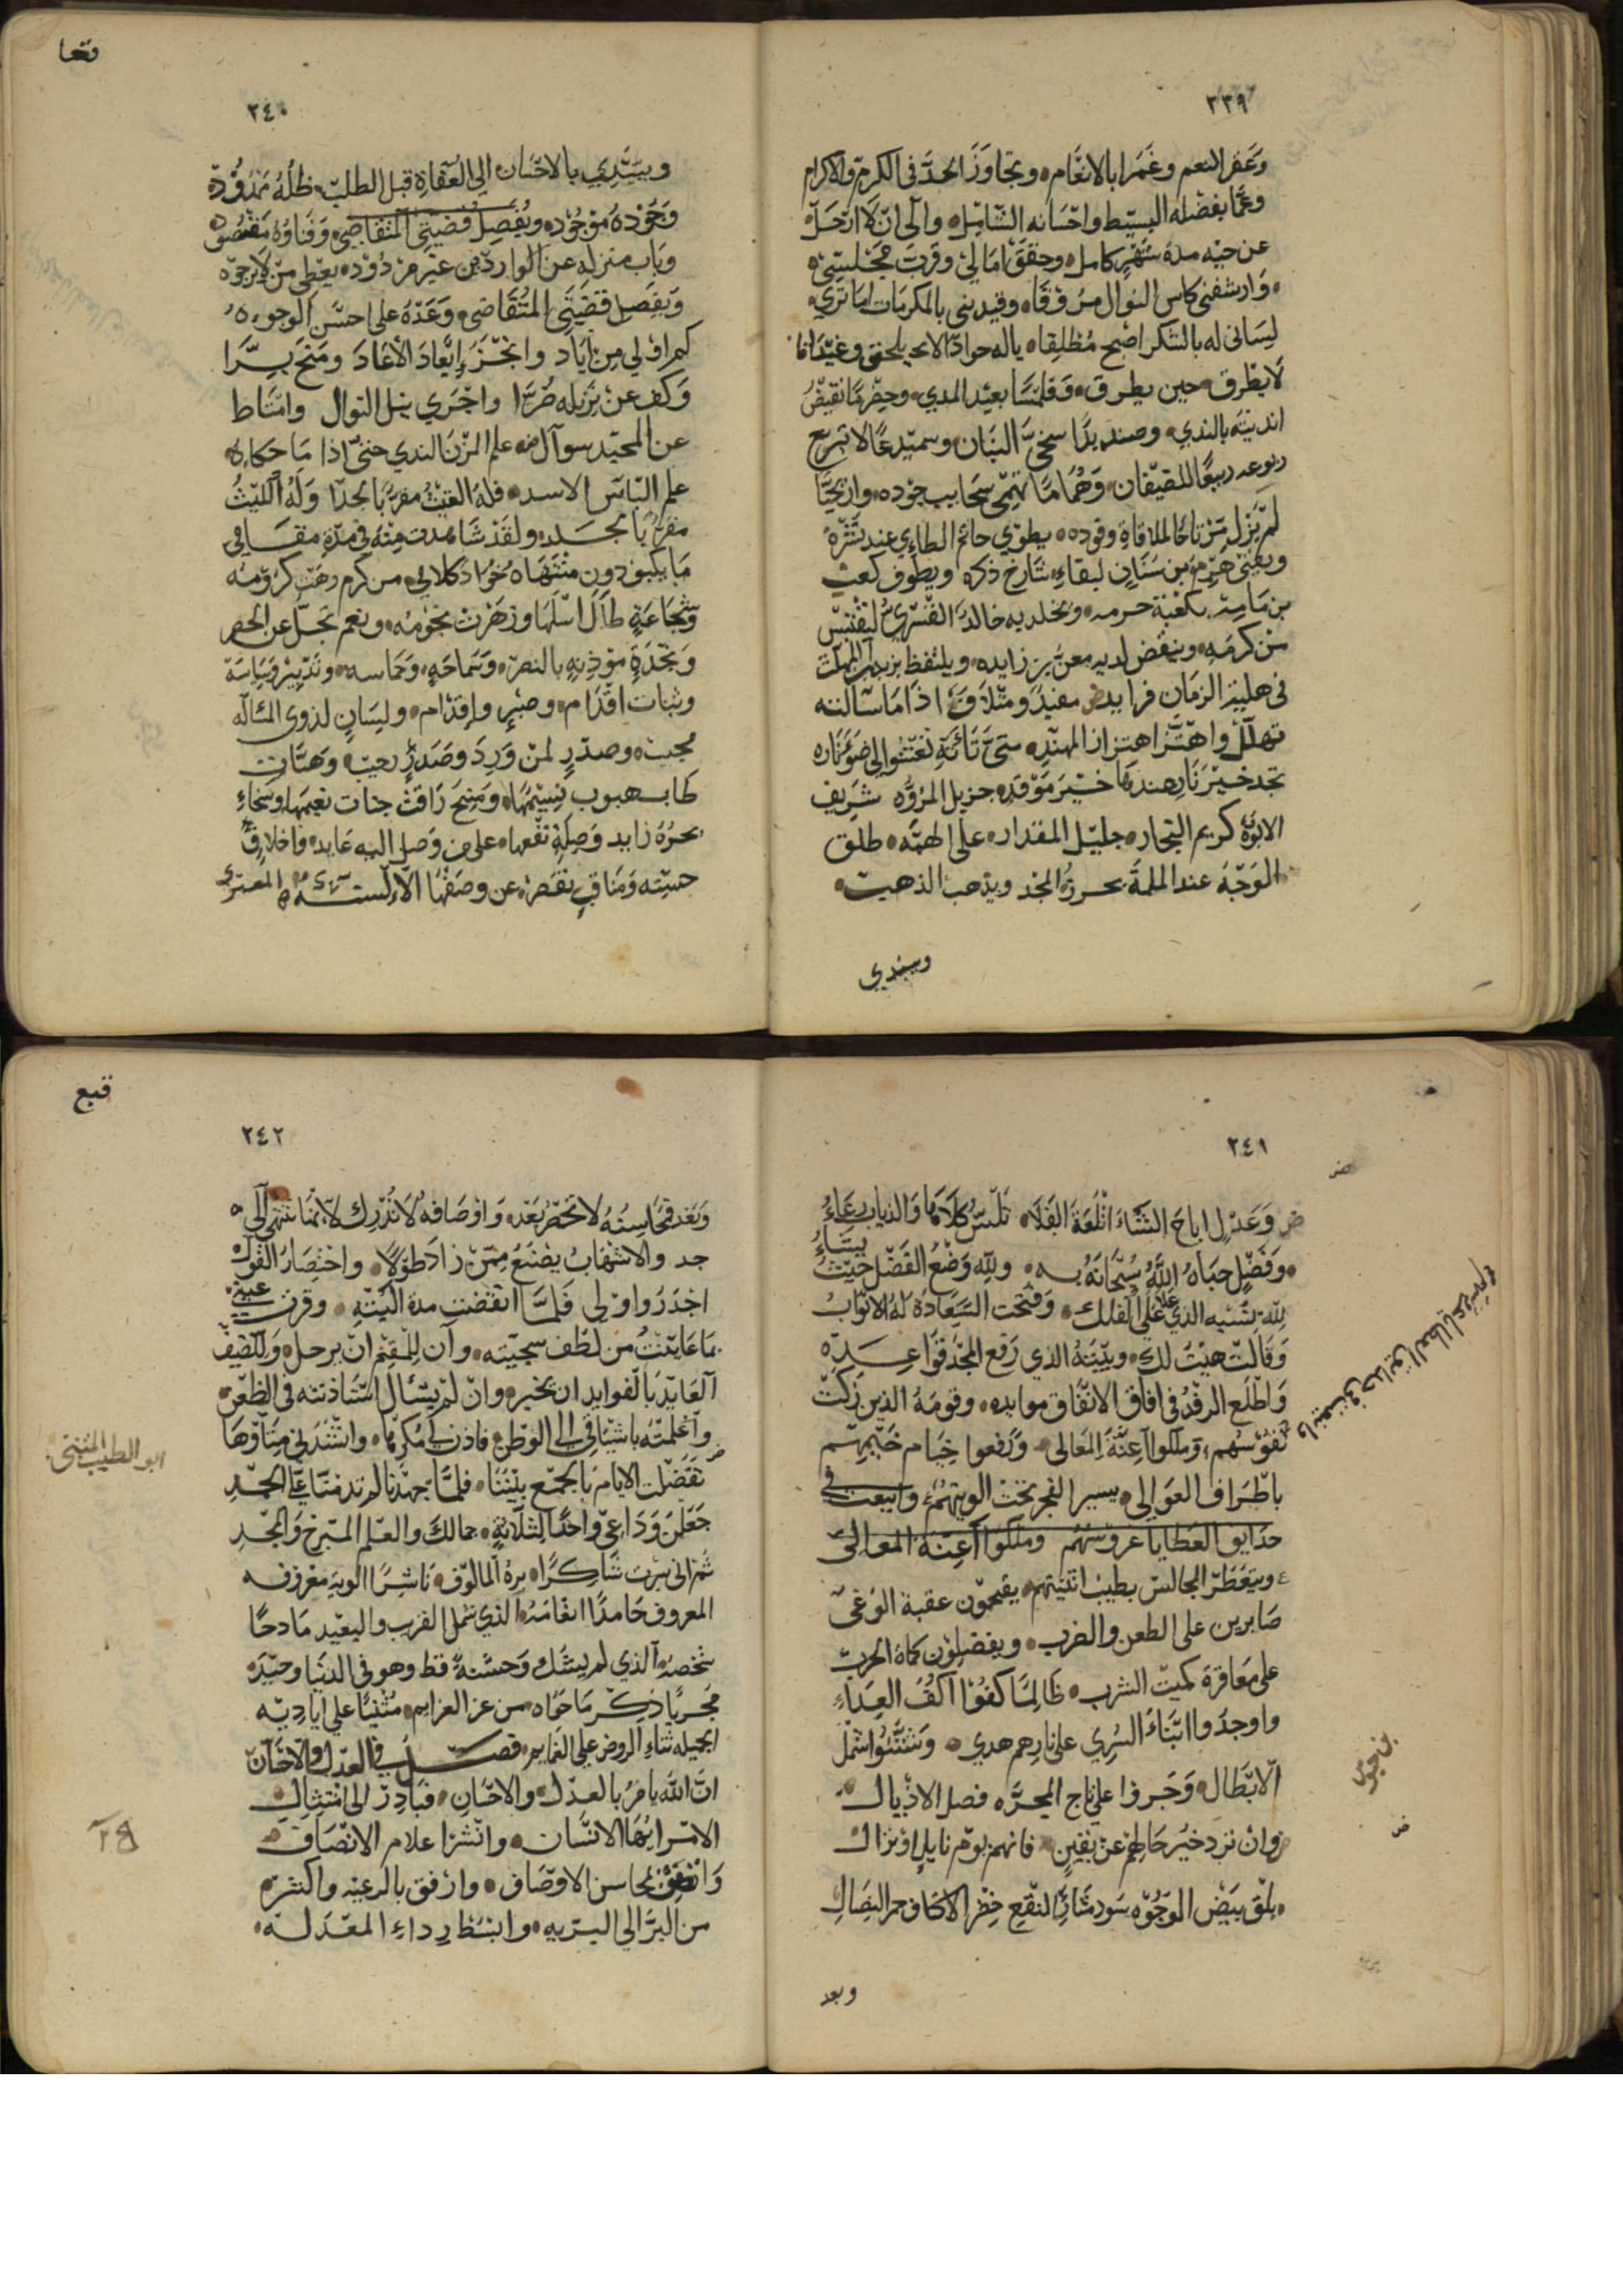 ٢٣٩
وغفر النعم وغمرا بالانعام وتجاوز الحد في الكرم والاكرام
وعما بفضله البسيط واحسانه الشامل والى ان لا ارتحل
عن حيه مدة شهر كامل وحقق امالي وقرب مجلسي
وارشفني كاس النوال مروقا وقيدني بالمكرمات اما تري
لساني له بالشكر اصبح مطلقا ياله جوادا لا يلحق وغيدانا
لا يطرق حين يطرق وقلمسا بعيد المدي وحضرما تفيض
انديته بالندي وصنديدا سخي البنان وسميدعا لا تبرح
ربوعه ربيعا للضيفان وهماما تهمي سحايب جوده واريحيا
لم يزل مرتاحا لملاقاة وفوده يطوي حاتم الطاءي عند نشره
ويفني هرم بن سنان لبقاء شارخ ذكره ويطوف كعب
بن مامة بكعبة حرمه ويخلد به خالد القسري ليقتبس
من كرمه وينقض لديه معن بن زايده ويلتفظ يزيد بن المهلب
في هلبة الزمان فرايده مفيد ومتلاف اذا ما سالته
تهلل واهتز اهتزاز المهند متي تاته تعشوا الى ضوء ناره
تجد خير نار عندها خير موقد جزيل المروه شريف
الابوة كريم النجار جليل المقدار على الهمه طلق
الوجه عند الملمة يحرز المجد ويذهب الذهب
ويبتدي
قعا
٢٤٠
ويبتدي بالاحسان الي العفاة قبل الطلب ظله ممدود
وجوده موجود ويفصل قضيتي المتقاضي وفناؤه مقصود
وباب منزله عن الوارد من غير مردود يعطي من لا يرجوه
ويفصل قضيتي المتقاضي وعده على احسن الوجوه
كم اولي من اياد وانجز ايعاد الاعاد ومنح بسرا
وكف عن نزيله ضرا واجري نيل النوال واماط
عن المجتد سوآل علم المزن الندي حتي اذا ما حكاه
علم الباس الاسد فله الغيث مقر بالجدا وله الليث
مقر بالجلد ولقد شاهدت منه في مدة مقامي
ما يكبو دون منتهاه جواد كلامي من كرم زهت كرومه
وشجاعة طال اسلها وزهرت نجومه ونعم تجل عن الحصر
ونجدة موذنه بالنصر وسماحه وحماسه وتدبير وسياسة
وثبات اقدام وصبر واقدام ولسان لذوي المسئاله
مجيب وصدر لمن ورد وصدر رحيب وهبات
طاب هبوب نسيمها ومنح راقت جنات نعيمها وسخاء
بحره زايد وصلة نفعها على من وصل اليه عايد واخلاق
حسنه ومناقب تقصر عن وصفها الالسنه المعتز
٢٤١
وعدل اباح الشاء اتلعة الفلا تلس كلاها والذياب رعاء
وفضل حباه الله سبحانه به ولله وضع الفضل حيث يشاء
لله بيته الذي علا على الفلك وفتحت السعادة له الابواب
وقالت هيت لك وبيته الذي رفع المجد قواعده
واطلع الرفد في افاق الانفاق موايده وقومه الذين زكت
نفوسهم وملكوا اعنة المعالي ورفعوا خيام خيمهم
باطراف العوالي يسير الفجر تحت الويتهم واينعت في
حدايق العطايا غروسهم وملكوا اعنة المعالي
ويتعطر المجالس بطيب اثنيتهم يقتحمون عقبة الوغي
صابرين على الطعن والضرب ويفضلون كماة الحرب
على معاقرة كميت الشرب ظالما كفوا اكف العداء
واوجدوا ابناء السري على نارهم هدي وشتتوا شمل
الابطال وجروا على تاج المجره فضل الاذيال
وان ترد خير حالهم عن يقين فاتهم يوم نايل او نزال
تلق بيض الوجوه سود مثار النقع خضر الاكناف حمر النصال
وبعد
واينعت في حدايق العطايا غروسهم
بن حيوس
قبع
٢٤٢
وبعد فمحاسنه لا تحصر بعد واوصافه لا تدرك لانها تنتهي الى
حد والاسهاب يصنع ممن زاد طولا واختصار القول
اجدر واولى فلما انقضت مدة الليه وقرت عيني
بما عاينت من لطف سجيته وآن للمقيم ان يرحل وللضيف
العايد بالفوايد ان يخبر وان لم يسئال استاذنته في الظعن
واعلمته باشتياقي الى الوطن فاذن لي مكرها وانشدني متأوها
تفضلت الايام بالجمع بيننا فلما حمدنا لم تدمنا على الحمد
جعلن وداعي واحدا لثلاثة جمالك والعلم المبرح والمجد
ثم اني سرت شاكرا بره المالوف ناشرا الوية معروفه
المعروف حامدا انعامه الذي شمل القريب والبعيد مادحا
شخصه الذي لم يشك وحشة قط وهو في الدنيا وحيد
مجريا ذكر ما حواه من عز العزايم مثنيا على اياديه
الجميله ثناء الروض على الغمايم فصل في العدل والاحسان
ان الله يامر بالعدل والاحسان فبادر الى امتثال
الامر ايها الانسان وانشر اعلام الانصاف
واتصف بمحاسن الاوصاف وارفق بالرعيه واكثر
من البر الي البريه وابسط رداء المعدله
ابو الطيب المتنبي